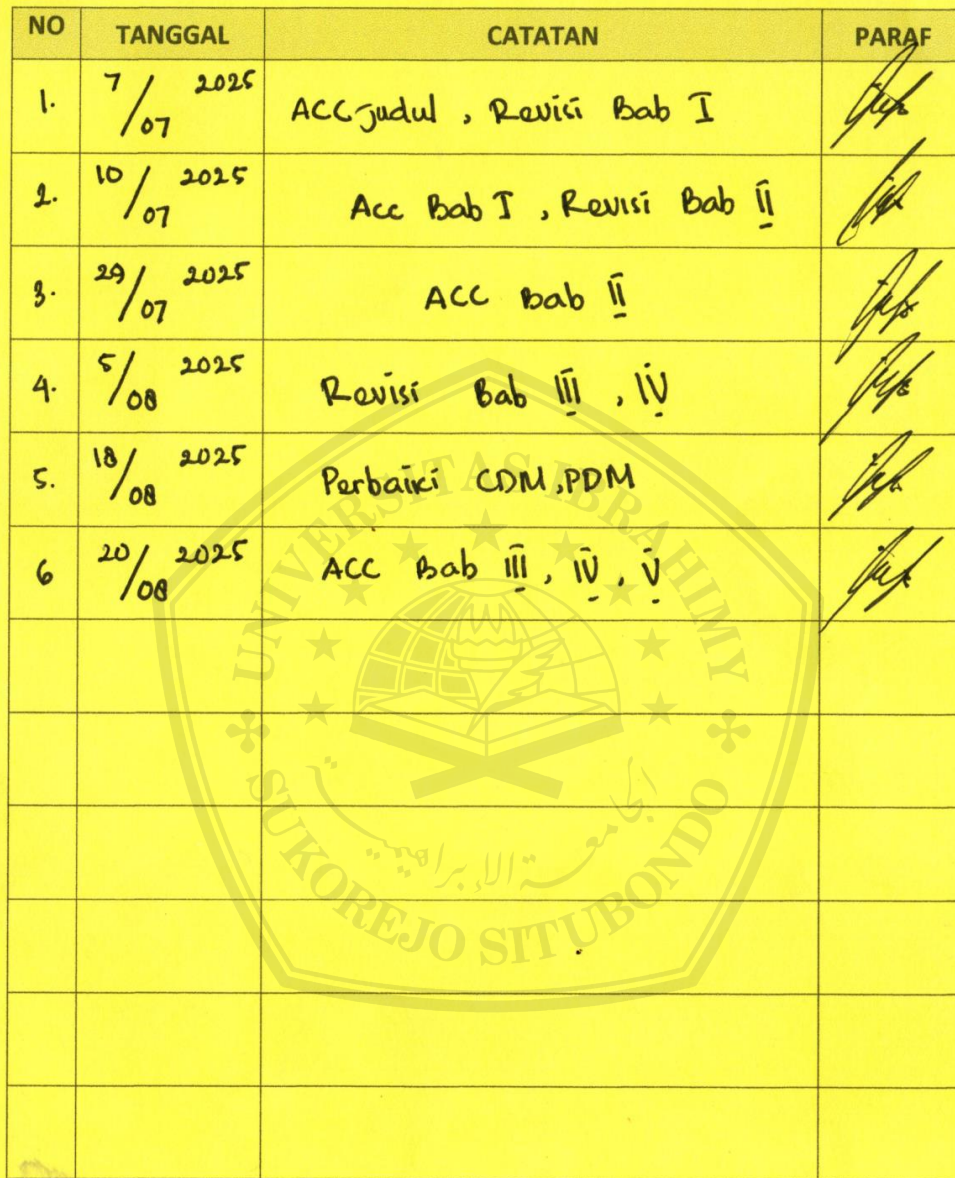 NO TANGGAL CATATAN PARAF
1. 7/07 2025 ACC judul, Revisi Bab I
2. 10/07 2025 Acc Bab I, Revisi Bab II
3. 29/07 2025 ACC Bab II
4. 5/08 2025 Revisi Bab III, IV
5. 18/08 2025 Perbaiki CDM, PDM
6 20/08 2025 ACC Bab III, IV, V
UNIVERSITAS IBRAHIMY
SUKOREJO SITUBONDO